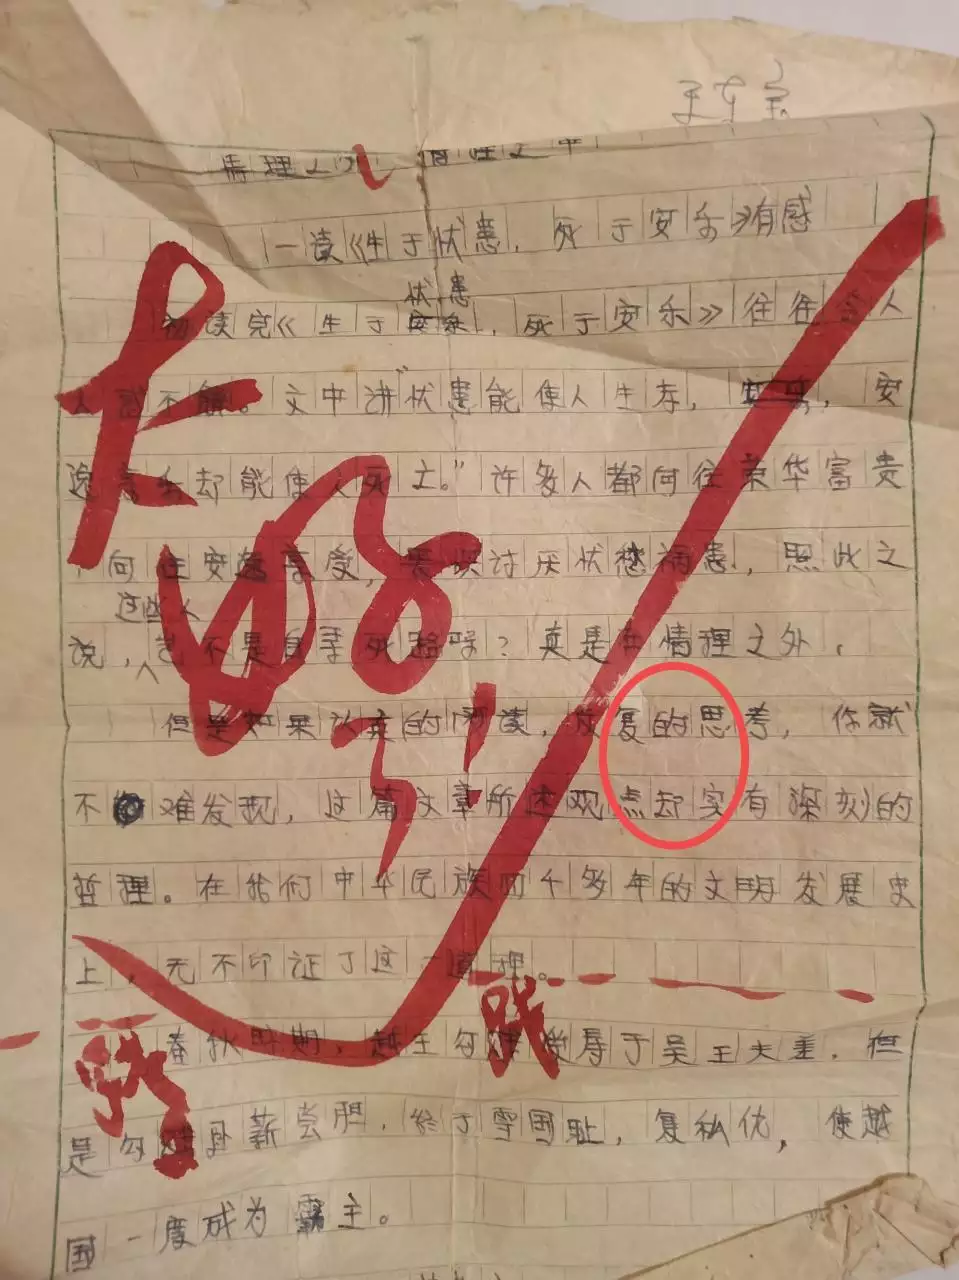 情理之外 情理之中
一读《生于忧患，死于安乐》有感
忧患
初读完《生于安乐，死于安乐》往往令人
人感不解。文中讲"忧患能使人生存，安乐，安
逸享乐却能使人死亡。"许多人都向往荣华富贵
向往安逸享受，畏惧讨厌忧愁祸患，照此之
这些人
说，岂不是自寻死路呀？真是在情理之外，
但是如果认真的阅读，反复的思考，你就
不难发现，这篇文章所述观点却实有深刻的
哲理。在我们中华民族四千多年的文明发展史
上，无不印证了这一道理。
春秋时期，越王勾践受辱于吴王夫差．但
是勾践卧薪尝胆．终于雪国耻，复私仇，使越
国一度成为霸主。
大好!